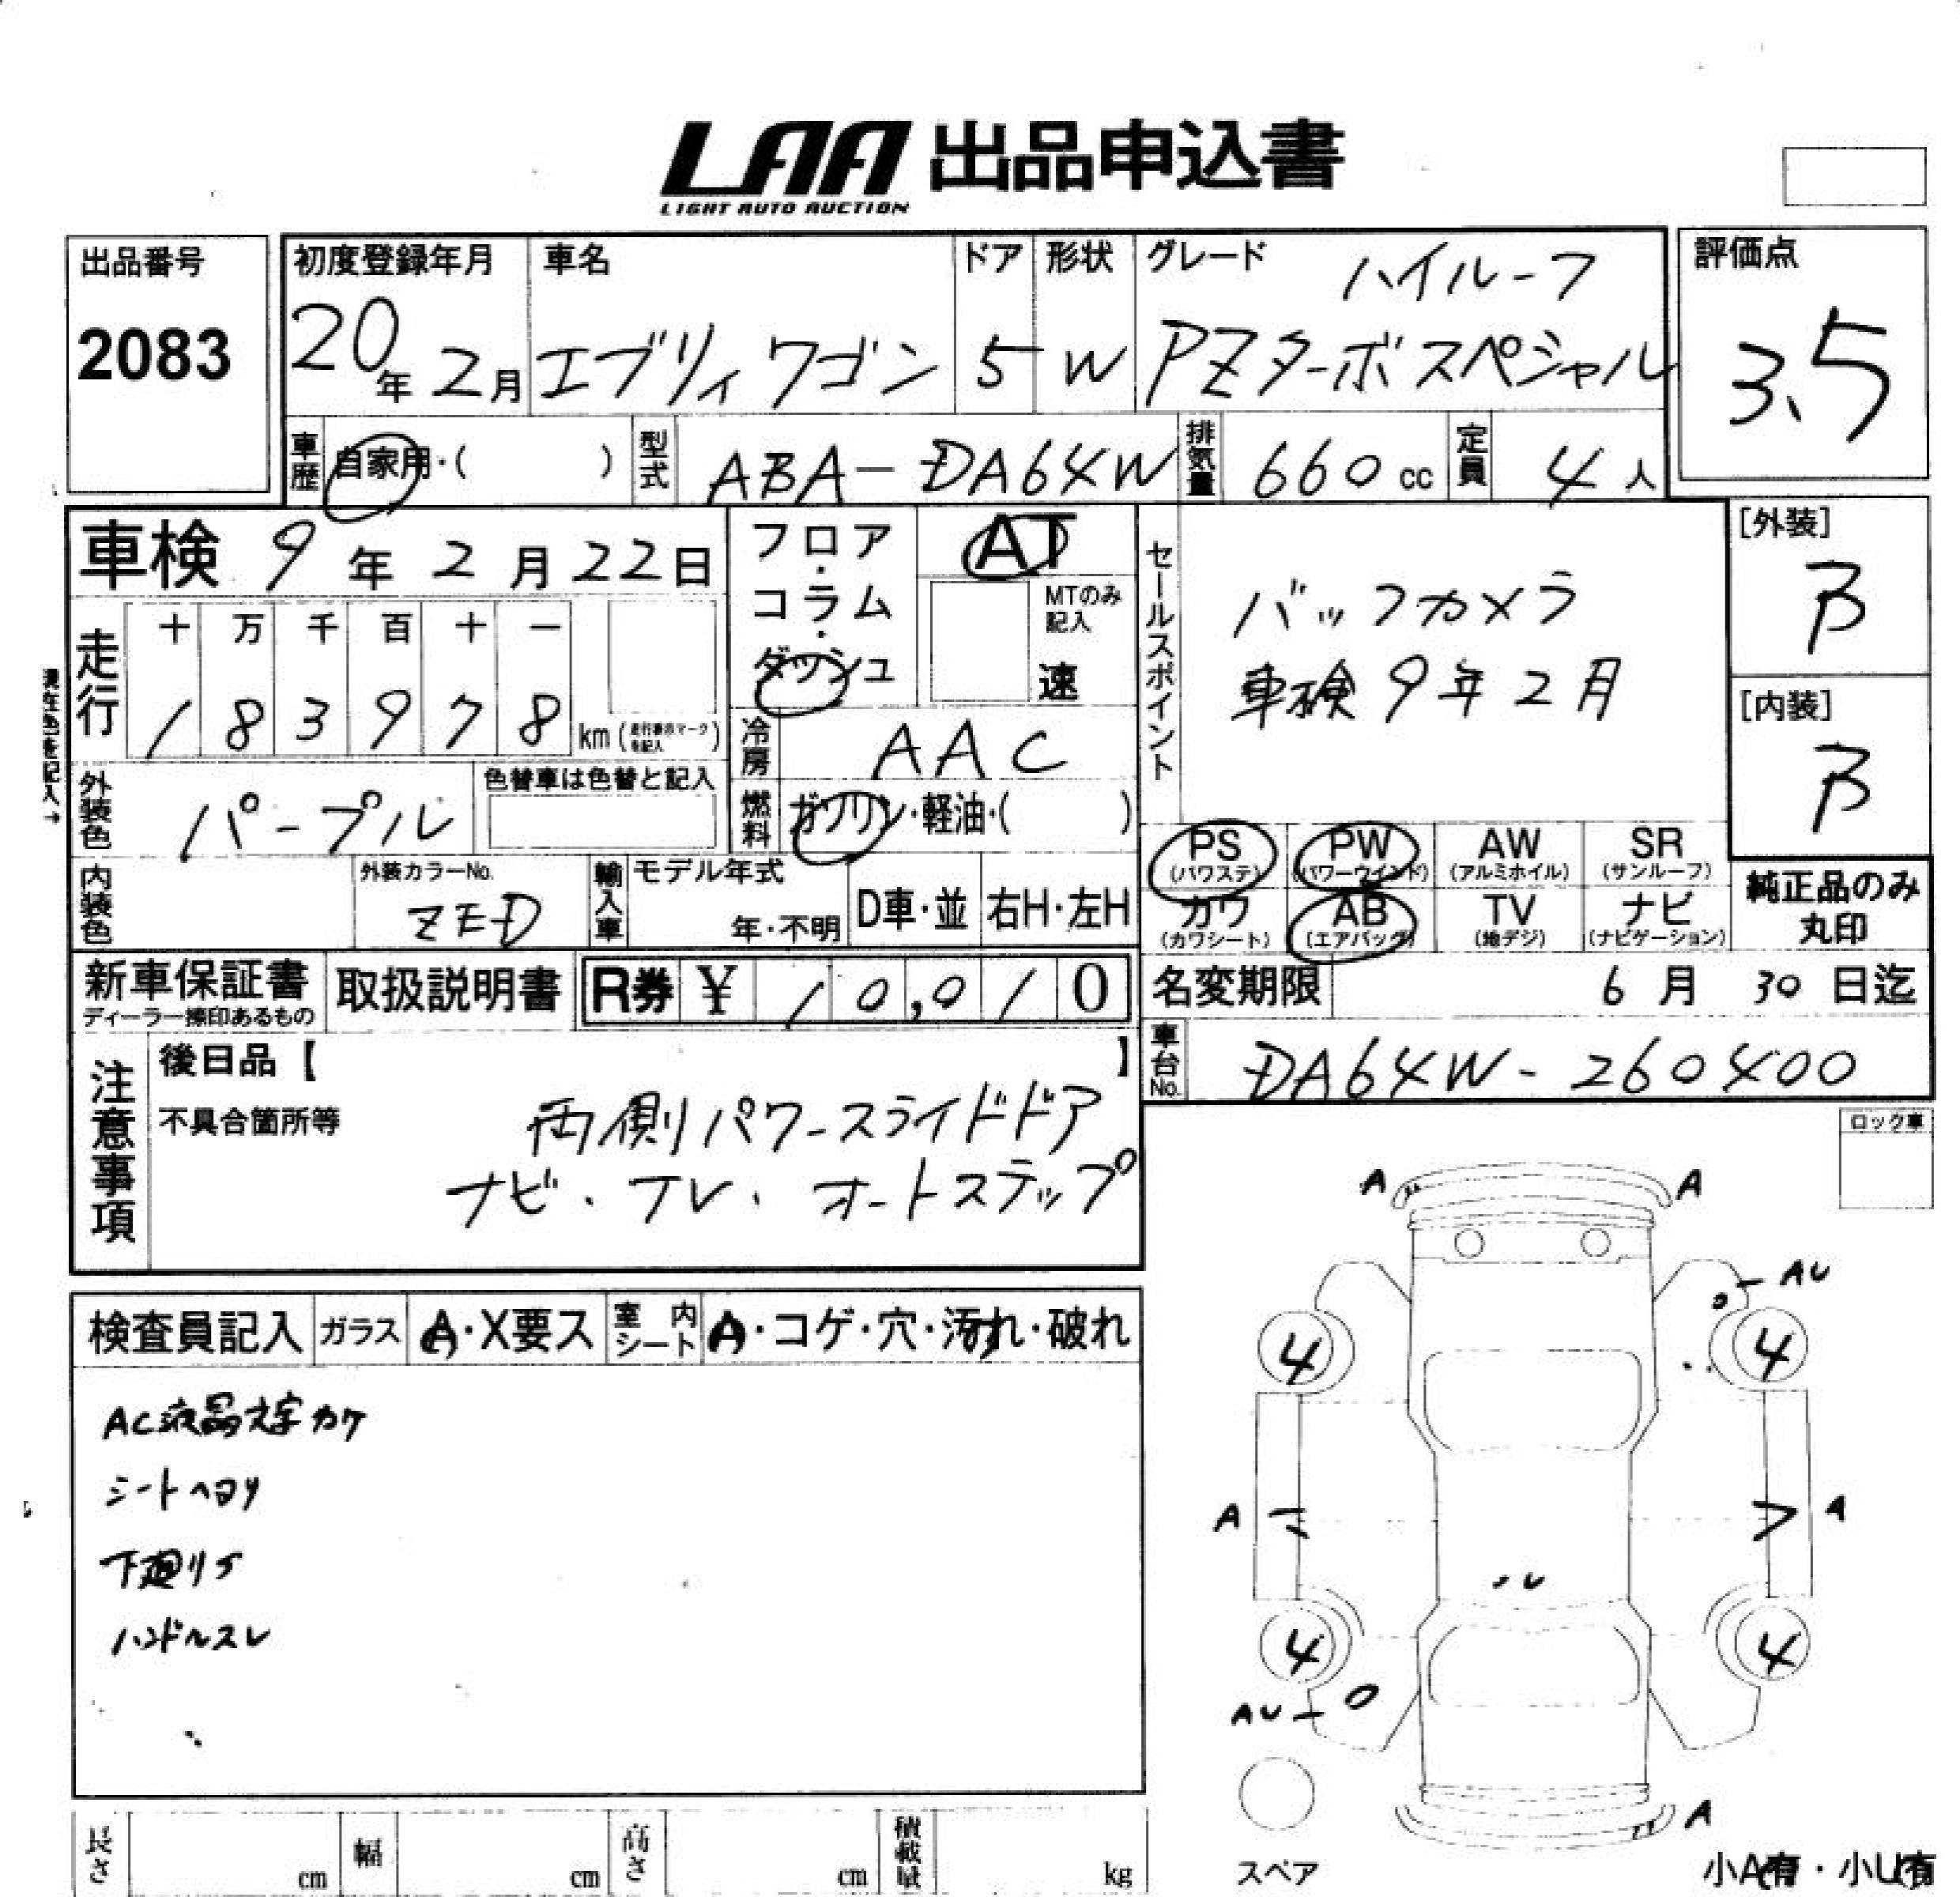 LAA 出品申込書
LIGHT AUTO AUCTION
出品番号
2083
初度登録年月
20年 2月
車名
エブリィ ワゴン
ドア
5
形状
W
グレード ハイルーフ
PZターボスペシャル
評価点
3.5
車歴 自家用・( )
型式 ABA-DA64W
排気量 660 cc
定員 4人
車検 9年 2月 22日
走行 十 万 千 百 十 一
1 8 3 9 7 8 km (走行表示マークを記入)
現在色を記入→
フロア・コラム・ダッシュ
AT
MTのみ記入
速
冷房 AAC
燃料 ガソリン・軽油・( )
セールスポイント
バックカメラ
車検 9年2月
[外装]
B
[内装]
B
外装色 パープル
色替車は色替と記入
内装色
外装カラーNo.
ZED
輸入車
モデル年式
年・不明
D車・並
右H・左H
PS (パワステ)
PW (パワーウインド)
AW (アルミホイル)
SR (サンルーフ)
カワ (カワシート)
AB (エアバッグ)
TV (地デジ)
ナビ (ナビゲーション)
純正品のみ
丸印
新車保証書
ディーラー捺印あるもの
取扱説明書
R券 ¥ 10,010
名変期限 6月 30日迄
車台No. DA64W-260400
注意事項
後日品【 】
不具合箇所等
両側パワースライドドア
ナビ・TV・オートステップ
ロック車
検査員記入
ガラス A・X要ス
室内シート A・コゲ・穴・汚れ・破れ
AC液晶文字カケ
シートヘヨリ
下廻りサ
ハンドルスレ
A A
AU
4 4
A A
・U
4 4
AU
A
スペア
小A(有)・小U(有)
長さ cm
幅 cm
高さ cm
積載量 kg